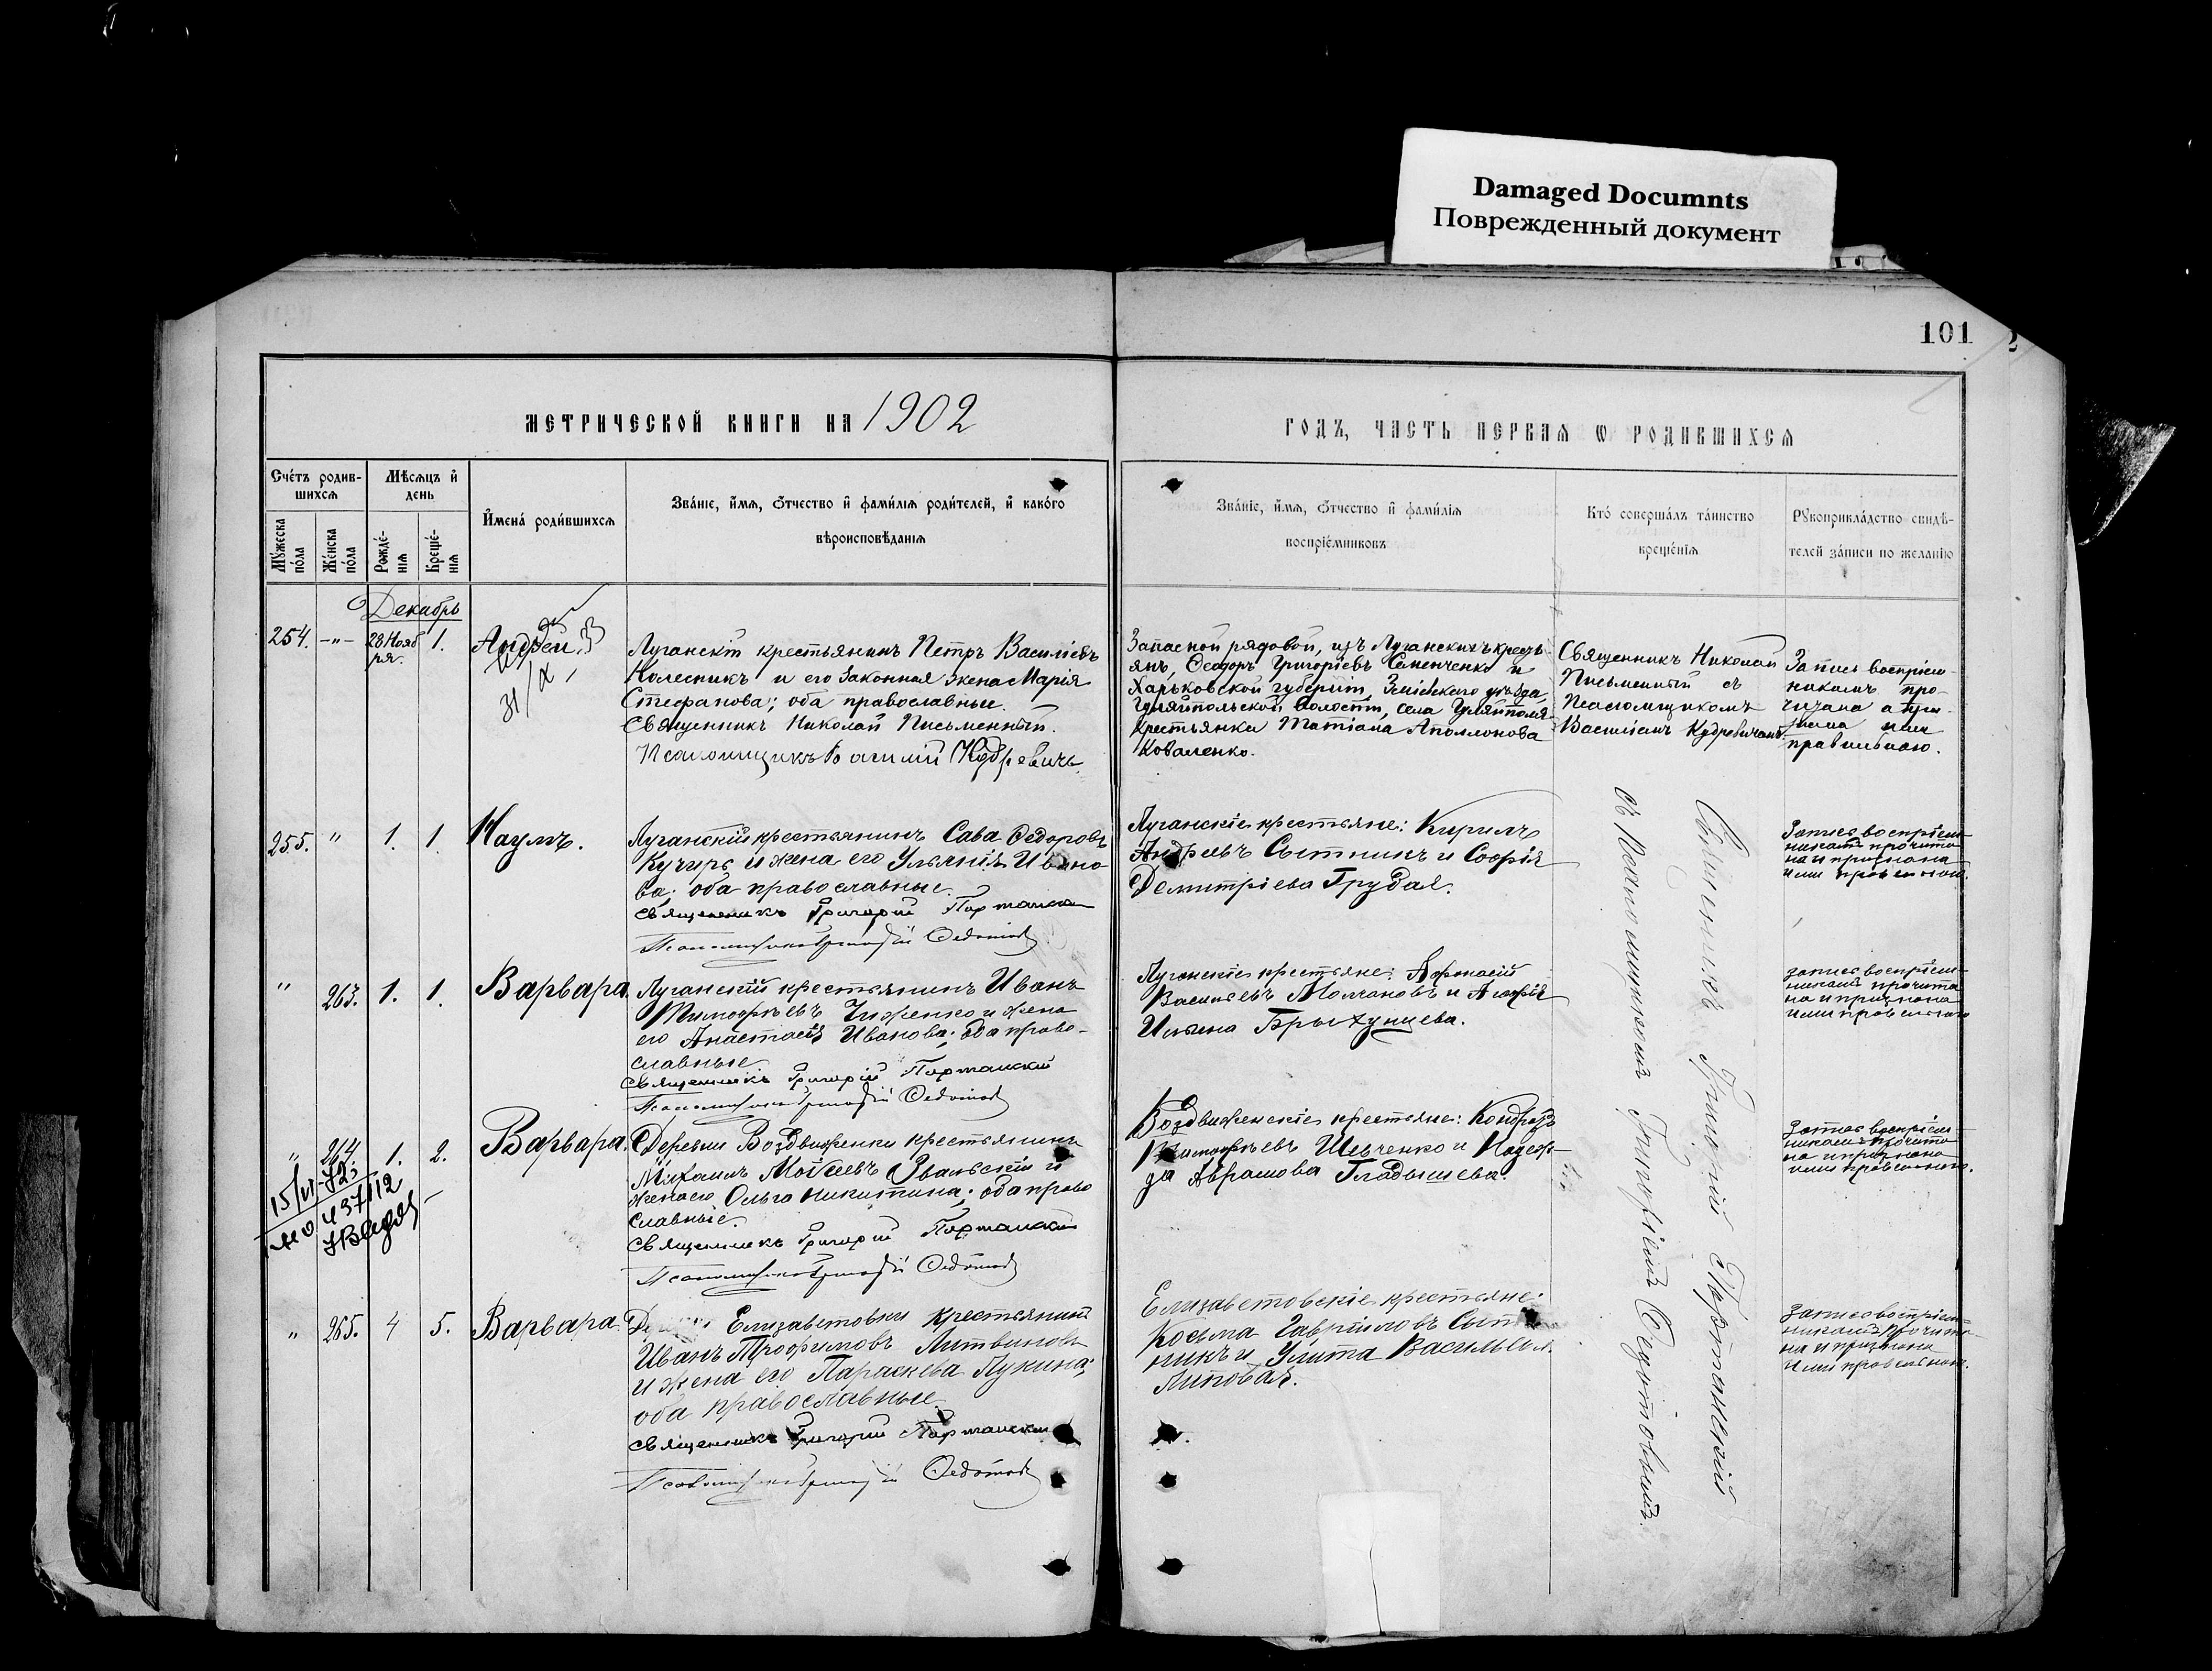 Damaged Documnts
Поврежденный документ
101
2
МЕТРИЧЕСКОЙ КНИГИ НА 1902
ГОДЪ, ЧАСТЬ ПЕРВАЯ Ѡ РОДИВШИХСЯ
Счетъ родив-
шихся
Мѣсяцъ и
день
Мужеска
пола
Женска
пола
Рожде-
нія
Креще-
нія
Имена родившихся
Званіе, имя, отчество и фамилія родителей, и какого
вѣроисповѣданія
Званіе, имя, отчество и фамилія
воспріемниковъ
Кто совершалъ таинство
крещенія
Рукоприкладство свидѣ-
телей записи по желанію
Декабрь
254. -"- 28 Нояб
ря. 1. Андрей
Луганскій крестьянинъ Петръ Васильевъ
Колесникъ и его законная жена Марія
Стефанова; оба православные.
Священникъ Николай Письменный.
Псаломщикъ Василій Кудревичъ
Запасной рядовой, изъ Луганскихъ кресть-
янъ, Ѳеодоръ Григорьевъ Семенченко и
Харьковской губерніи, Зміевскаго уѣзда,
волости, села
крестьянка Татіана Аполлонова
Коваленко.
Священникъ Николай
Письменный съ
Псаломщикомъ
Василіемъ Кудревичемъ
Запись воспріем-
никамъ про-
читана и при-
знана ими
правильною.
255. " 1. 1. Наумъ.
Луганскій крестьянинъ Сава Ѳедоровъ
Кучиръ и жена его Ульянія Ивано-
ва; оба православные.
Священникъ Григорій Портанскій
Псаломщикъ Ѳедотовъ
Луганскіе крестьяне: Кирилъ
Андреевъ Сытникъ и Софія
Демитріева Грудая.
Запись воспріем-
никамъ прочита
на и признана
ими правельною.
" 263. 1. 1. Варвара.
Луганскій крестьянинъ Иванъ
Тимофѣевъ Чиженко и жена
его Анастасія Иванова; оба право-
славные
Священникъ Григорій Портанскій
Псаломщикъ Ѳедотовъ
Луганскіе крестьяне: Афонасій
Васильевъ Молчановъ и
Ильена Брыхунцева.
Запись воспріем-
никамъ прочита
на и признана
ими правельною
" 264. 1. 2. Варвара.
15/VI-72.
Деревни Воздвиженки крестьянинъ
Михаилъ Моѵсеевъ Звольскій и
жена его Ольга Никитина; оба право
славные.
Священникъ Григорій Портанскій
Псаломщикъ Ѳедотовъ
Воздвиженскіе крестьяне: Кондратъ
Тимофѣевъ Шевченко и Надеж-
да Аврамова Гладышева.
Запись воспріем-
никамъ прочита
на и признана
ими правельною.
" 265. 4 5. Варвара.
Елизаветовки крестьянинъ
Иванъ Трофимовъ Литвиновъ
и жена его Параскева Лукина;
оба православные.
Священникъ Григорій Портанскій
Псаломщикъ Ѳедотовъ
Елизаветовскіе крестьяне:
Косьма Гавриловъ Сыт-
никъ и Улита Васильева
Липовая.
Запись воспріем-
никамъ прочита-
на и признана
ими правельною.
Священникъ Григорій Портанскій
съ Псаломщикомъ Ѳедотовымъ.